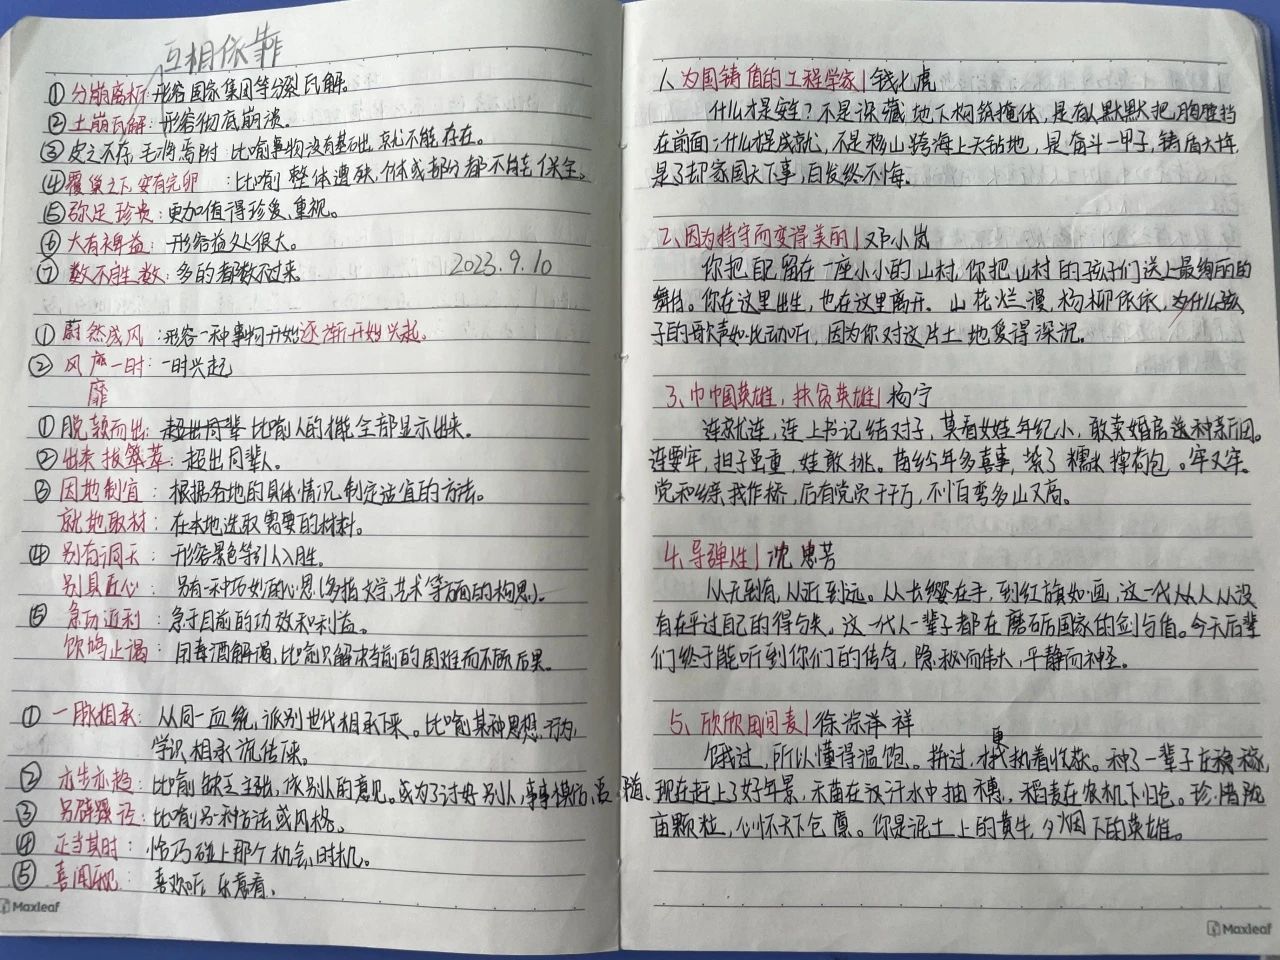 互相依靠
①分崩离析:形容国家集团等分裂瓦解。
②土崩瓦解:形容彻底崩溃。
③皮之不存,毛将焉附:比喻事物没有基础,就不能存在。
④覆巢之下安有完卵:比喻整体遭殃,个体或部分都不能保全。
⑤弥足珍贵:更加值得珍爱,重视。
⑥大有裨益:形容益处很大。
⑦数不胜数:多的都数不过来。 2023.9.10
①蔚然成风:形容一种事物开始逐渐开始兴起。
②风靡一时:一时兴起
靡
①脱颖而出:超出同辈 比喻人的才能全部显示出来。
②出类拔萃:超出同辈人。
③因地制宜:根据各地的具体情况,制定适宜的方法。
就地取材:在本地选取需要的材料。
④别有洞天:形容景色等引人入胜。
别具匠心:另有一种巧妙的心思(多指文学、艺术等方面的构思)。
⑤急功近利:急于目前的功效和利益。
饮鸩止渴:用毒酒解渴,比喻只解决当前的困难而不顾后果。
①一脉相承:从同一血统,派别世代相承下来。比喻某种思想,行为,
学识相承流传下来。
②亦步亦趋:比喻缺乏主张,依别人的意见。或为了讨好别人,事事模仿,追随。
③另辟蹊径:比喻另一种方法或风格。
④正当其时:恰巧碰上那个机会,时机。
⑤喜闻乐见:喜欢听,乐意看。
Maxleaf
1、为国铸盾的工程学家|钱七虎
什么才是安全?不是深藏地下构筑掩体,是有人默默把胸膛挡
在前面;什么才是成就,不是移山跨海上天钻地,是奋斗一甲子,铸盾大阵,
是了却家国天下事,白发终不悔。
2、因为持守而变得美丽|邓小岚
你把自己留在一座小小的山村,你把山村的孩子们送上最绚丽的
舞台。你在这里出生,也在这里离开。山花烂漫,杨柳依依,为什么孩
子的歌声如此动听,因为你对这片土地爱得深沉。
3、巾帼英雄,扶贫英雄|杨宁
连就连,连上书记结对子,莫看女娃年纪小,敢卖婚房送种新田。
连要牢,担子虽重,娃敢挑。苗乡今年多喜事,紫了糯米撑荷包。牢又牢。
党和乡亲我作桥,后有党员千千万,不怕百弯多山又高。
4、导弹人生|沈忠芳
从无到有,从近到远。从长缨在手,到红旗如画,这一代人从没
有在乎过自己的得与失。这一代人一辈子都在磨砺国家的剑与盾。今天后辈
们终于能听到你们的传奇,隐秘而伟大,平静而神圣。
5、欣欣田间麦|徐淙祥
饿过,所以懂得温饱。拼过,才更执着收获。种了一辈子庄稼,
现在赶上了好年景,禾苗在汗水中抽穗,稻麦在农机下归仓。珍惜陇
亩颗粒,心怀天下仓廪。你是泥土上的黄牛,夕烟下的英雄。
Maxleaf